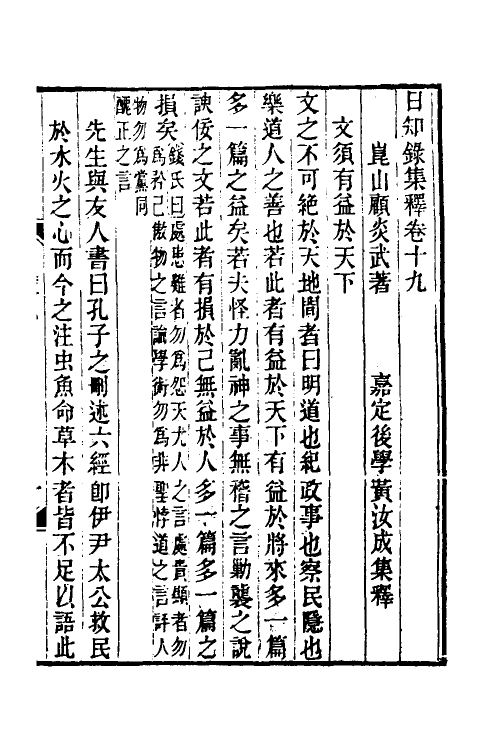 日知錄集釋卷十九
崑山顧炎武著　嘉定後學黃汝成集釋
文須有益於天下
文之不可絕於天地間者曰明道也紀政事也察民隱也
樂道人之善也若此者有益於天下有益於將來多一篇
多一篇之益矣若夫怪力亂神之事無稽之言勦襲之說
諛佞之文若此者有損於己無益於人多一篇多一篇之
損矣
錢氏曰處患難者勿爲怨天尤人之言處貴顯者勿
爲矜己傲物之言論學術勿爲非聖悖道之言評人
物勿爲黨同
醜正之言
先生與友人書曰孔子之刪述六經卽伊尹太公救民
於水火之心而今之注虫魚命草木者皆不足以語此